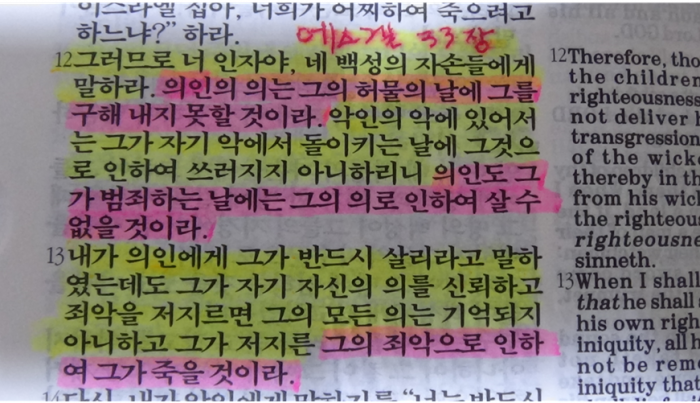 이스라엘 집아, 너희가 어찌하여 죽으려고
하느냐?” 하라.
에스겔 33장
12그러므로 너 인자야, 네 백성의 자손들에게
말하라. 의인의 의는 그의 허물의 날에 그를
구해 내지 못할 것이라. 악인의 악에 있어서
는 그가 자기 악에서 돌이키는 날에 그것으
로 인하여 쓰러지지 아니하리니 의인도 그
가 범죄하는 날에는 그의 의로 인하여 살 수
없을 것이라.
13내가 의인에게 그가 반드시 살리라고 말하
였는데도 그가 자기 자신의 의를 신뢰하고
죄악을 저지르면 그의 모든 의는 기억되지
아니하고 그가 저지른 그의 죄악으로 인하
여 그가 죽을 것이라.
14다시, 내가 악인에게 말하기를 “너는 반드시
12Therefore, tho
the children
righteousness
not deliver h
transgression
of the wick
thereby in th
from his wic
the righteou
righteousn
sinneth.
13When I shall
that he shall
his own righ
iniquity, all h
not be rem
iniquity that